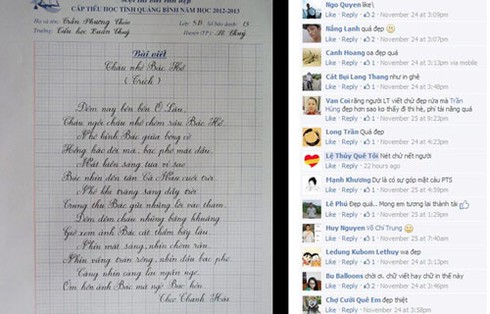 CẤP TIỂU HỌC TỈNH QUẢNG BÌNH NĂM HỌC 2012-2013
Họ và tên: Trần Phương Thảo Lớp: 5B Số báo danh: 13
Trường: Tiểu học Xuân Thuỷ Huyện (TP): Lệ Thuỷ
Bài viết
Cháu nhớ Bác Hồ
( Trích )
Đêm nay bên bến Ô Lâu,
Cháu ngồi cháu nhớ chòm râu Bác Hồ.
Nhớ hình Bác giữa bóng cờ
Hồng hào đôi má, bạc phơ mái đầu.
Mắt hiền sáng tựa vì sao
Bác nhìn đến tận Cà Mau cuối trời.
Nhớ khi trăng sáng đầy trời
Trung thu Bác gửi những lời vào thăm.
Đêm đêm cháu những bâng khuâng
Giở xem ảnh Bác cất thầm bấy lâu
Nhìn mắt sáng, nhìn chòm râu,
Nhìn vầng trán rộng, nhìn đầu bạc phơ.
Càng nhìn càng lại ngẩn ngơ,
Ôm hôn ảnh Bác mà ngờ Bác hôn.
Thơ Thanh Hải
Ngo Quyen like\
Like · Reply · 2 · November 24 at 3:09pm
Nắng Lạnh quá đẹp
Like · Reply · 1 · November 24 at 3:11pm
Canh Hoang oa đẹp quá
Like · Reply · 1 · November 24 at 3:13pm via mobile
Cát Bụi Lang Thang như in ghê
Like · Reply · 1 · November 24 at 3:13pm
Van Coi răng người LT viết chử đẹp rứa mà Trần
Hùng đẹp hơn sao ko thấy đi thi đi hè, phí tài năng quá
Like · Reply · 2 · November 24 at 3:14pm
Long Trần Quá đẹp
Like · Reply · 1 · November 24 at 3:33pm
Lệ Thủy Quê Tôi Nét chử nết người
Like · Reply · 22 hours ago
Mạnh Khương Dự là có sự góp mặt câu PTS
Like · Reply · November 25 at 4:39pm
Lê Phú Đẹp quá... Mong em tương lai thành tài
Like · Reply · 1 · November 25 at 1:29am
Huy Nguyen Võ Chí Trung
Like · Reply · 1 · November 25 at 7:40am
Ledung Kubom Lethuy wa đẹp
Like · Reply · 1 · November 25 at 4:43am
Bu Balloons chời ơi. chử viết hay chử in thế này
Like · Reply · 1 · November 24 at 3:36pm
Chợ Cưới Quê Em đẹp thiệt
Like · Reply · November 24 at 3:58pm